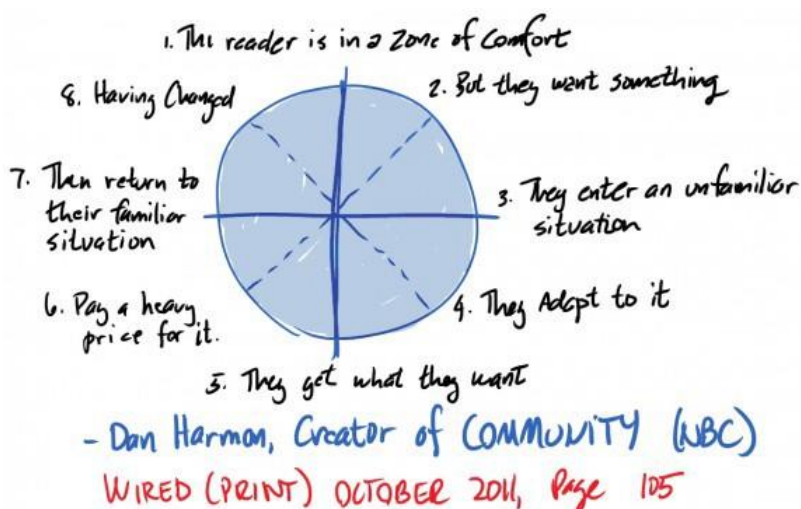 1. The reader is in a zone of comfort
2. But they want something
3. They enter an unfamiliar
situation
4. They Adapt to it
5. They get what they want
6. Pay a heavy
price for it.
7. Then return to
their familiar
situation
8. Having Changed
- Dan Harmon, Creator of COMMUNITY (NBC)
WIRED (PRINT) OCTOBER 2011, Page 105